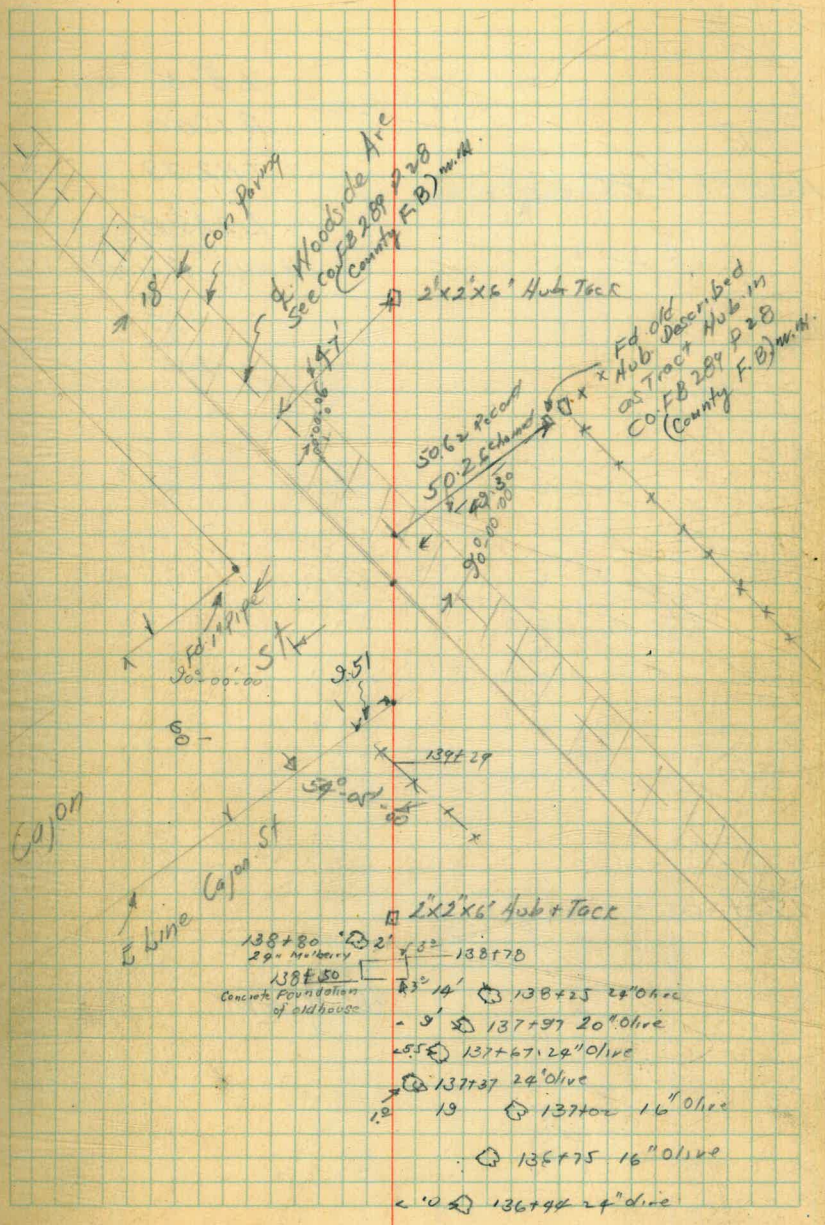 con Paving
18'
℄ Woodside Ave
See Co. F.B 289 P. 28
(County F.B)
2"x2"x6" Hub Tack
49.7'
Fd. old
Hub. Described
as Tract Hub. in
Co. F.B 289 P 28
(County F.B)
50.62 Record
50.26 Chained
49.30
90°-00'-00
Fd. 1" Pipe
90°-00'-00
St
60-
9.51
139+29
54°-05'-00
Cajon
E Line Cajon St
2"x2"x6" Hub + Tack
138+80 2'
24" Mulberry
3° 138+78
138+50
Concrete Foundation
of old house
3° 14' 138+25 24" Olive
9' 137+97 20" Olive
5.5 137+67 24" Olive
137+37 24" Olive
19 137+02 16" Olive
136+75 16" Olive
10 136+44 24" Olive